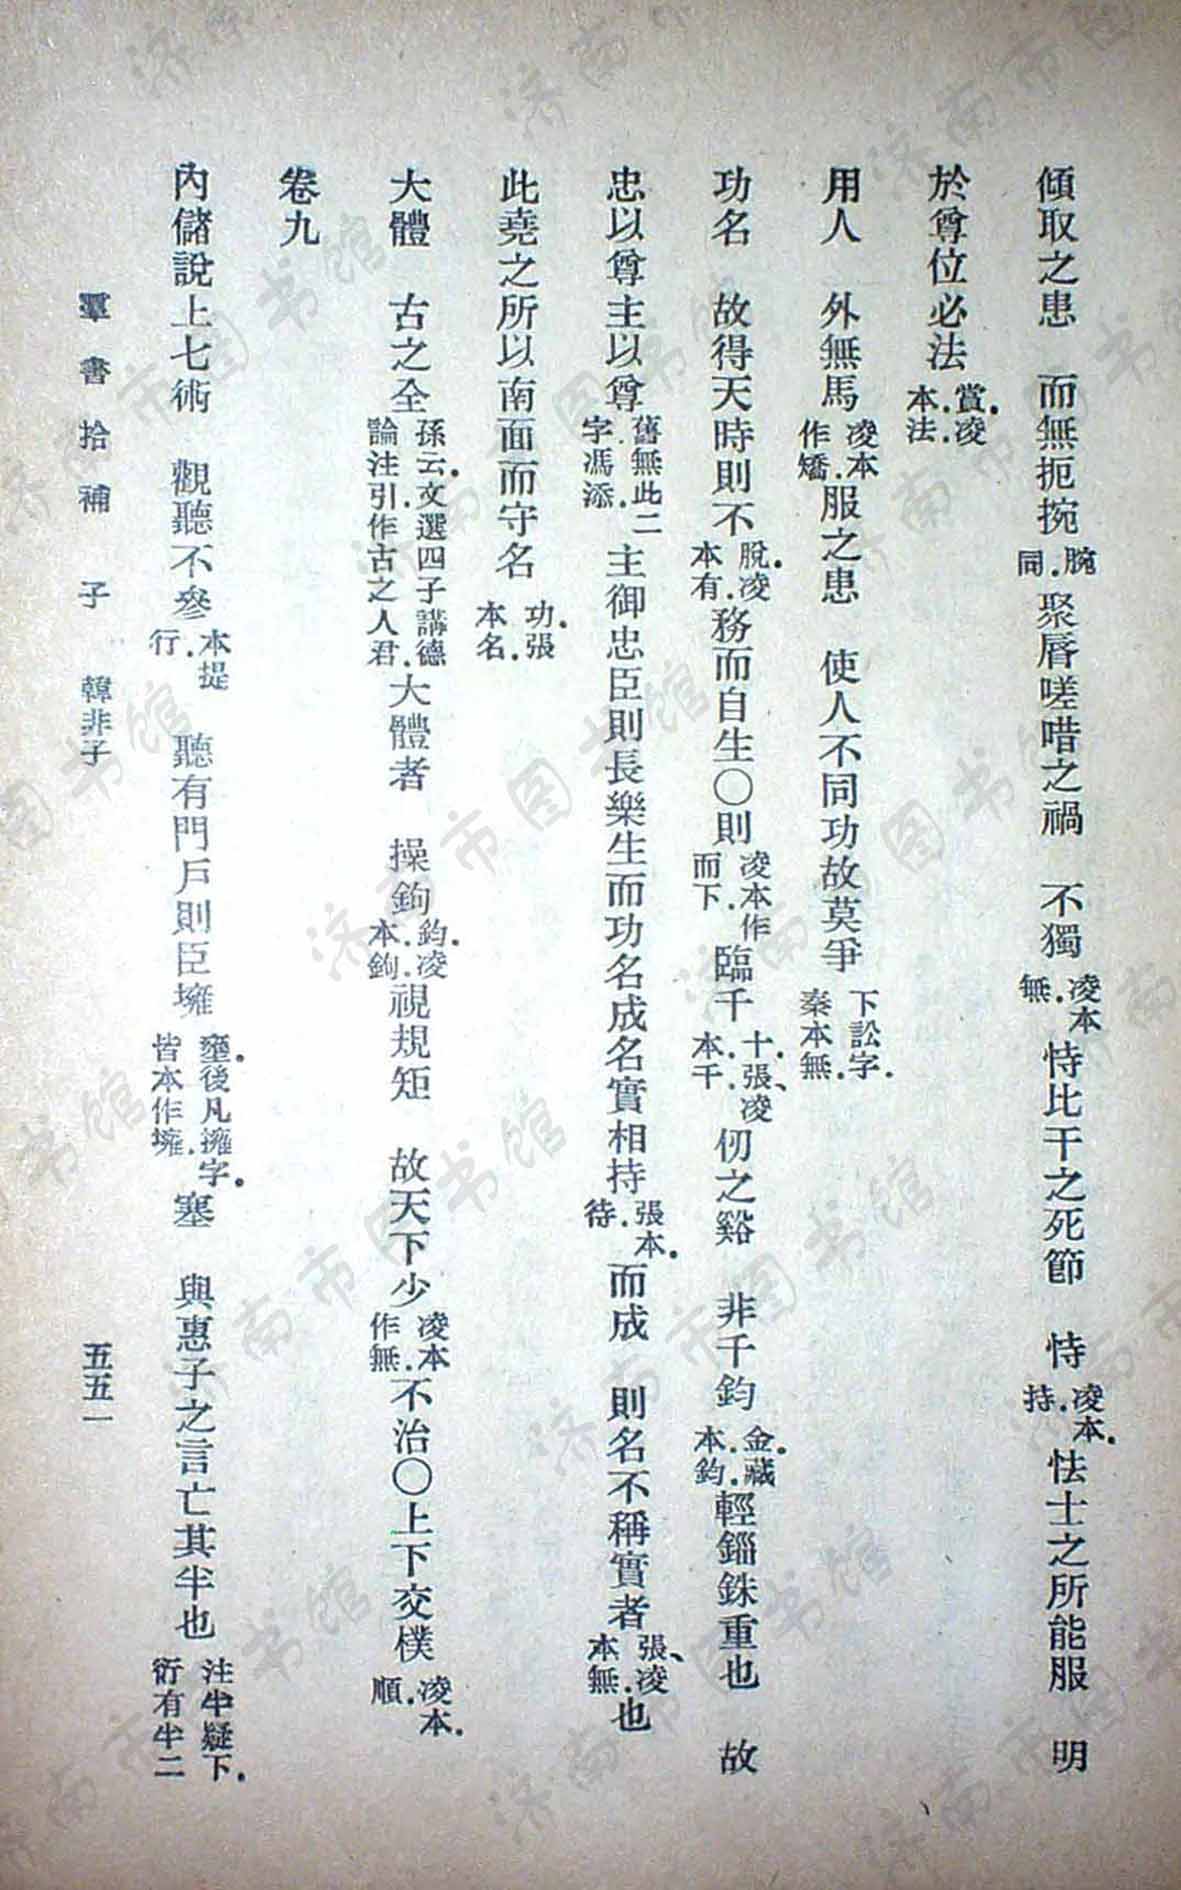 傾取之患　而無扼捥腕.同.聚脣嗟唶之禍　不獨凌本無.恃比干之死節　恃凌本.持.怯士之所能服　明
於尊位必法賞.凌本.法.
用人　外無馬凌本作矯.服之患　使人不同功故莫爭下訟字.秦本無.
功名　故得天時則不脫.凌本有.務而自生〇則凌本作而下.臨千十.張、凌本.千.仞之谿　非千鈞金.藏本.鈞.輕錙銖重也　故
忠以尊主以尊舊無此二字.馮添.主御忠臣則長樂生而功名成名實相持張本.待.而成　則名不稱實者張、凌本.無.也
此堯之所以南面而守名功.張本.名.
大體　古之全孫云.文選四子講德論注引.作古之人君.大體者　操鉤鈞.凌本.鉤.視規矩　故天下少凌本作無.不治〇上下交樸凌本.順.
卷九
內儲說上七術　觀聽不參本提行.　聽有門戶則臣壅壅.後凡擁字.皆本作壅.塞　與惠子之言亡其半也注半疑下.衍有半二
羣書拾補　子　韓非子　五五一
济南市图书馆